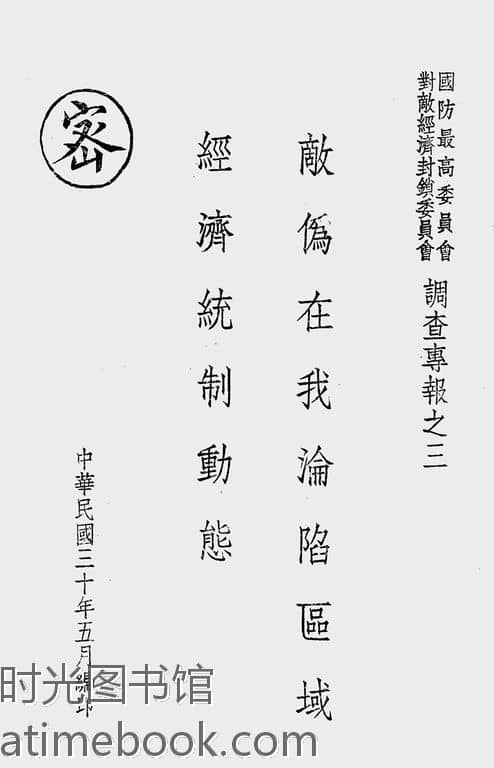 國防最高委員會
對敵經濟封鎖委員會
調查專報之三
敵僞在我淪陷區域
經濟統制動態
密
中華民國三十年五月編印
时光图书馆
atimebook.com